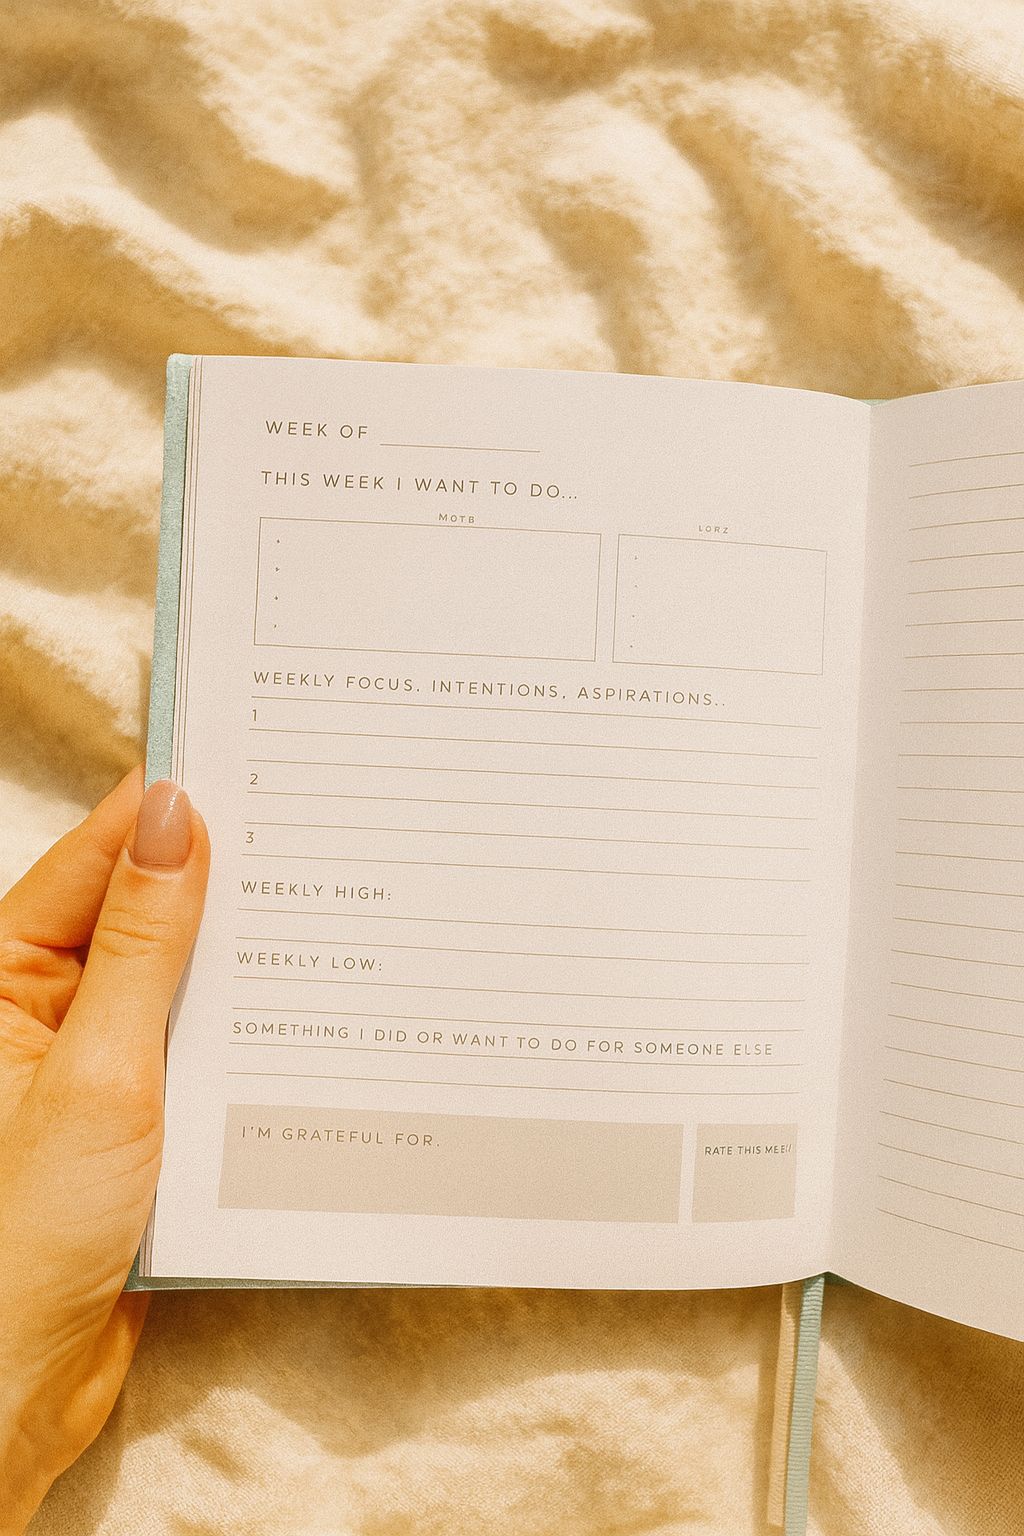 WEEK OF
THIS WEEK I WANT TO DO...
MOTB LORZ
WEEKLY FOCUS. INTENTIONS, ASPIRATIONS..
1
2
3
WEEKLY HIGH:
WEEKLY LOW:
SOMETHING I DID OR WANT TO DO FOR SOMEONE ELSE
I'M GRATEFUL FOR.
RATE THIS